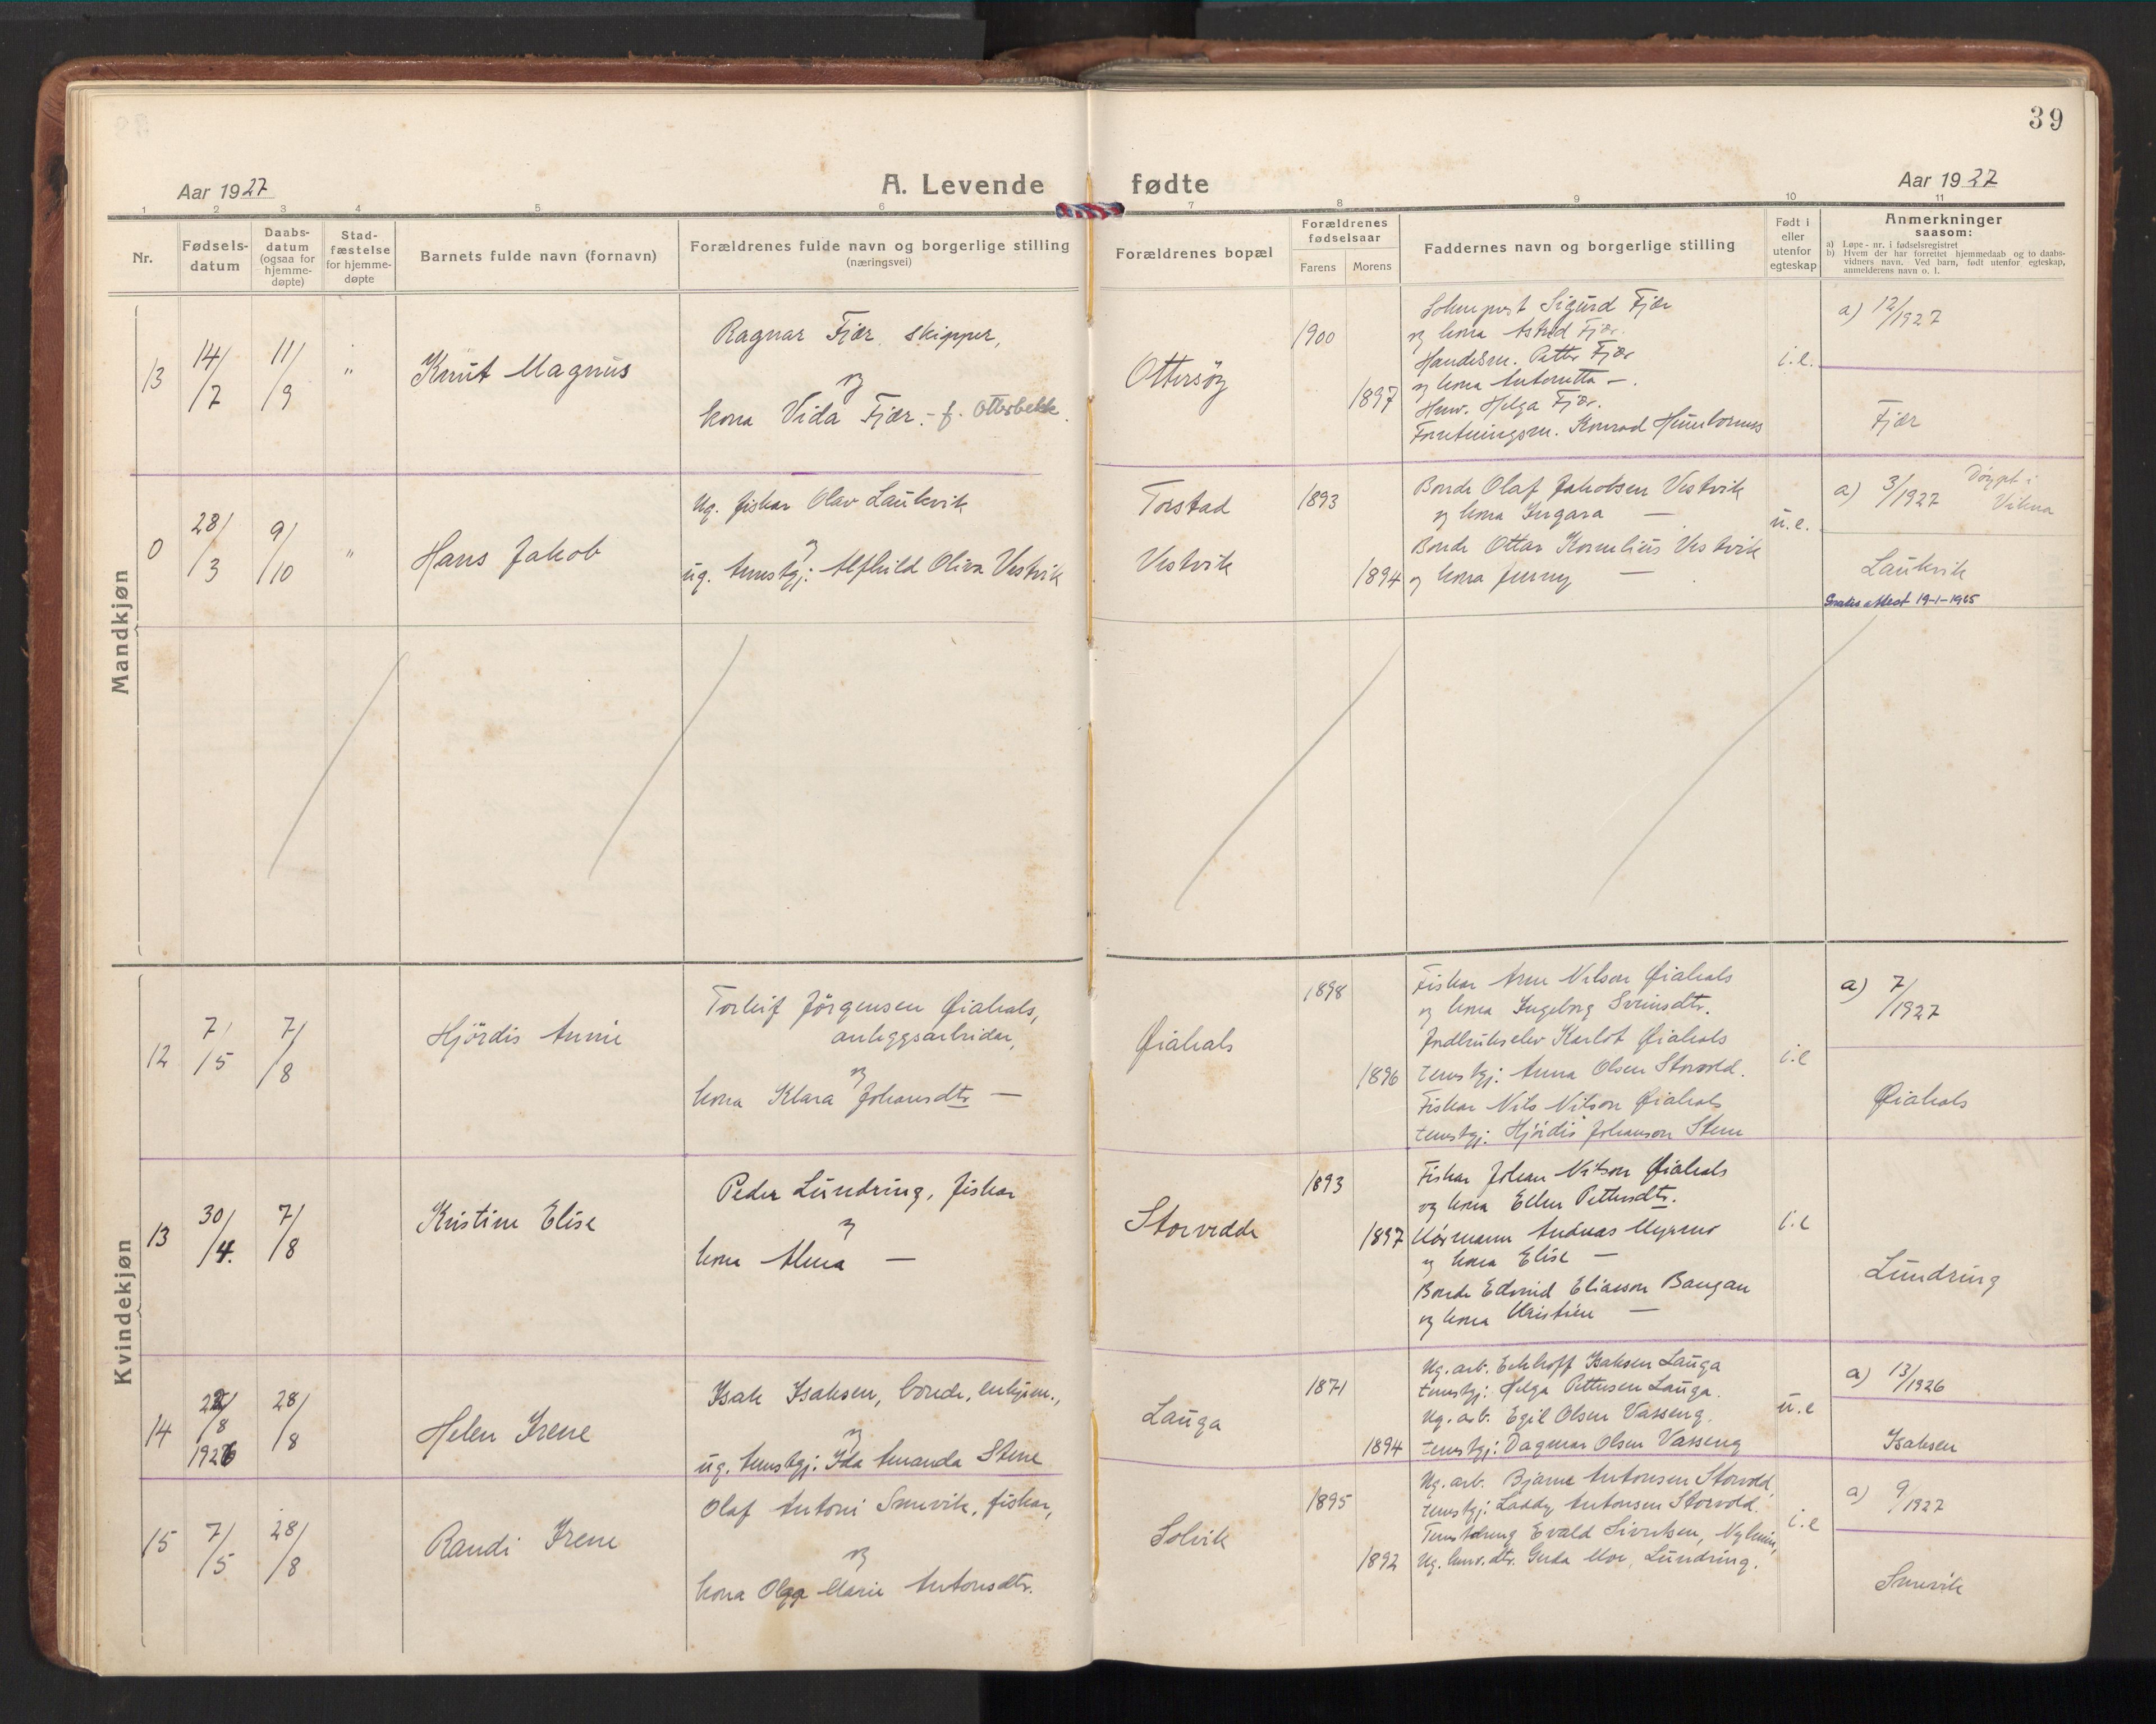 39
Aar 1927
A. Levende fødte
Aar 1927
1 2 3 4 5 6 7 8 9 10 11
Nr.
Fødsels-
datum
Daabs-
datum
(ogsaa for
hjemme-
døpte)
Stad-
fæstelse
for hjemme-
døpte
Barnets fulde navn (fornavn)
Forældrenes fulde navn og borgerlige stilling
(næringsvei)
Forældrenes bopæl
Forældrenes
fødselsaar
Farens Morens
Faddernes navn og borgerlige stilling
Født i
eller
utenfor
egteskap
Anmerkninger
saasom:
a) Løpe-nr. i fødselsregistret
b) Hvem der har forrettet hjemmedaab og to daabs-
vidners navn. Ved barn, født utenfor egteskap,
anmelderens navn o. l.
Mandkjøn
13
14/7
11/9
"
Knut Magnus
Ragnar Fjær, skipper,
og
kona Vida Fjær. - f. Otterbekk.
Ottersöy
1900
1897
Sigurd Fjær
og kona Astrid Fjær.
Handelsm. Petter Fjær
og kona Antonetta —.
Husv. Helga Fjær.
Forretningsm. Konrad
i.e.
a) 12/1927
Fjær
0
28/3
9/10
"
Hans Jakob
Ug. fiskar Olav Laukvik
og
ug. tenestgj: Alfhild Oliva Vestvik
Torstad
Vestvik
1893
1894
Bonde Olaf Jakobsen Vestvik
og kona Ingara —
Bonde Ottar Kornelius Vestvik
og kona Jenny —
u.e.
a) 3/1927
Döypt i
Vikna
Laukvik
Gratis attest 19-1-1965
Kvindekjøn
12
7/5
7/8
Hjördis Annie
Torleif Jörgensen Øiahals,
anleggsarbeidar,
og
kona Klara Johansdtr —
Øiahals
1898
1896
Fiskar Arne Nilson Øiahals
og kona Ingeborg Svensdtr.
Jordbrukselev Karlot Øiahals
tenestgj: Anna Olsen Storvold.
Fiskar Nils Nilson Øiahals
tenestgj: Hjördis Johanson Stene
i.e
a) 7/1927
Øiahals
13
30/4.
7/8
Kristine Elise
Peder Lundring, fiskar
og
kona Alma —
Storvedde
1893
1897
Fiskar Johan Nilson Øiahals
og kona Ellen Pettersdtr.
Andreas Myrmo
og kona Elise —
Bonde Edvind Eliasson Baugan
og kona Kristine —
i.e
Lundring
14
22/8
1926
28/8
Helen Irene
Isak Isaksen, bonde, enkjem.,
og
ug. tenestgj: Ida Amanda Stene
Lauga
1871
1894
Ug. arb. Eckhoff Isaksen Lauga
tenestgj: Helga Pettersen Lauga.
Ug. arb. Egil Olsen Vasseng.
tenestgj: Dagmar Olsen Vasseng
u.e
a) 13/1926
Isaksen
15
7/5
28/8
Randi Irene
Olaf Antoni Smevik, fiskar,
og
kona Olga Marie Antonsdtr.
Solvik
1895
1892
Ug. arb. Bjarne Antonsen Storvold,
tenestgj: Laddy Antonsen Storvold.
Tenstdreng Evald Sivertsen,
Ug. husv. dtr. Gerda Moe, Lundring.
i.e
a) 9/1927
Smevik